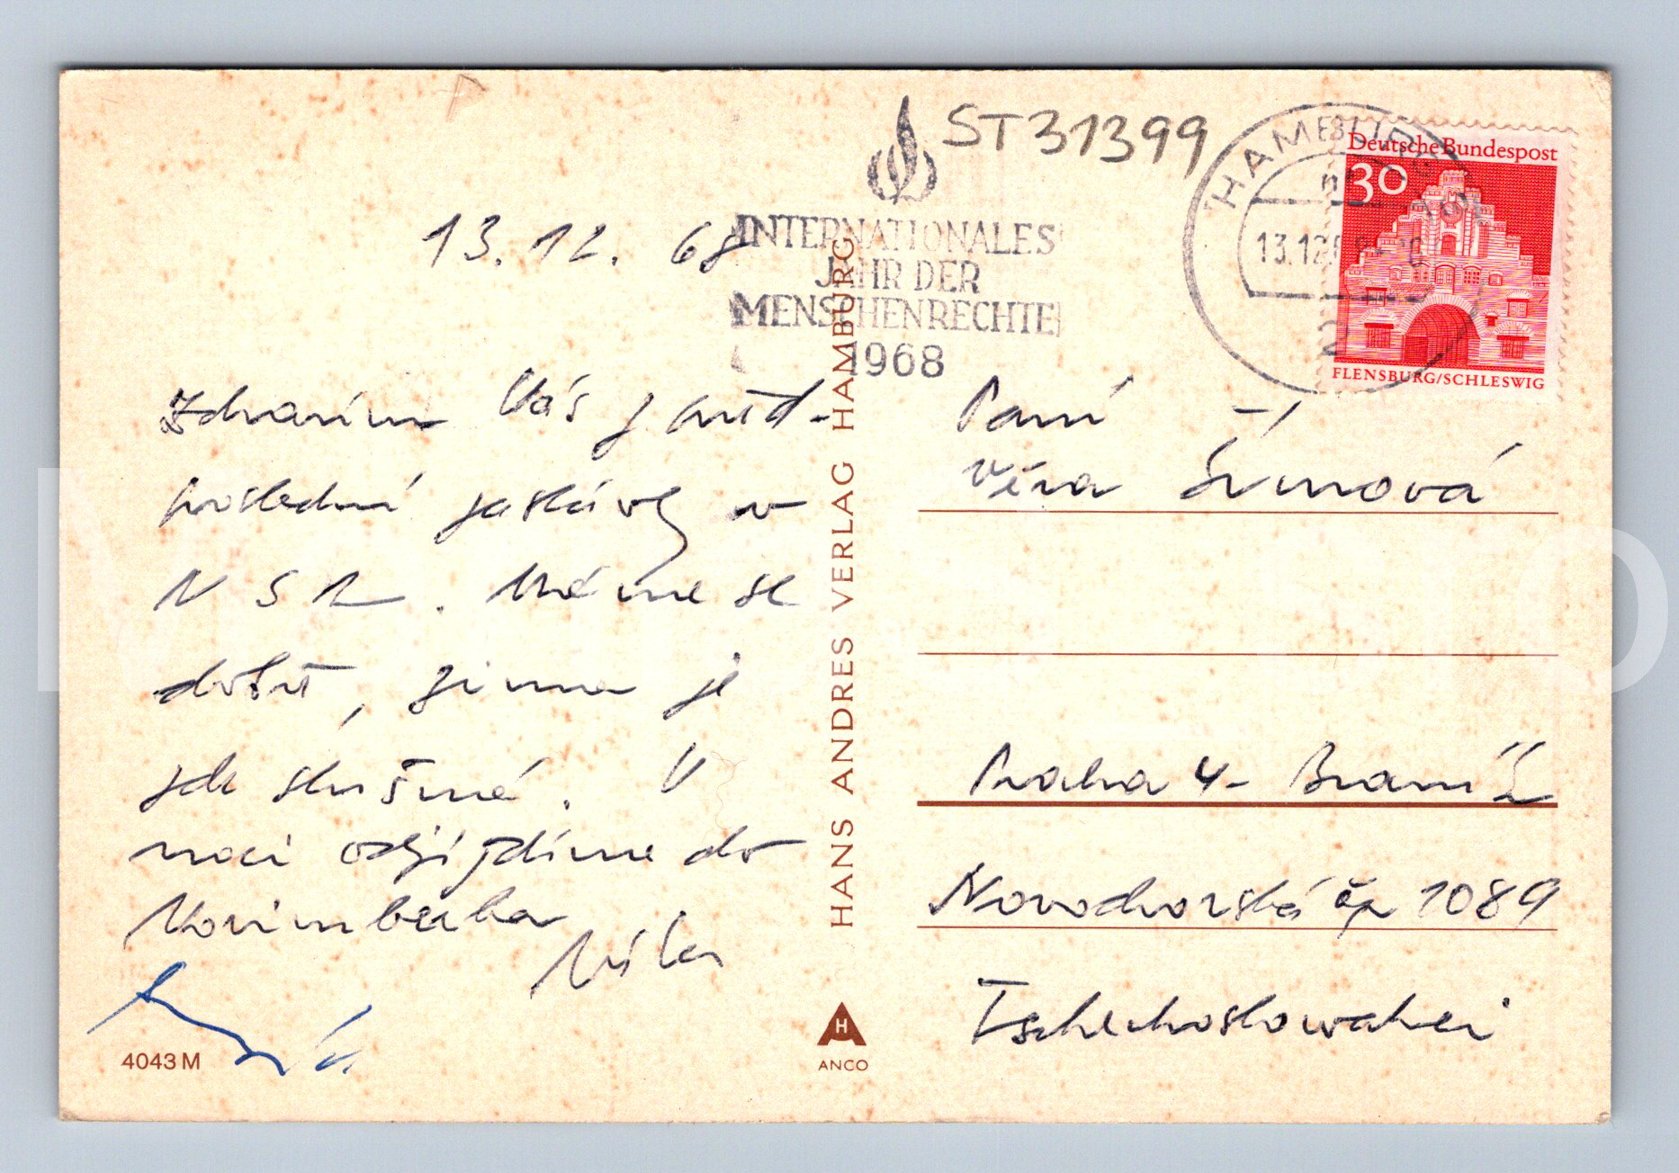 ST31399
13.12.68
INTERNATIONALES
JAHR DER
MENSCHENRECHTE
1968
HAMBURG
13.12
2
Deutsche Bundespost
30
FLENSBURG/SCHLESWIG
Zdravím Vás z před-
poslední zastávky v
NSR. Máme se
dobře, zima je
zde slušná. V
noci odjíždíme do
Norimberka
4043 M
HANS ANDRES VERLAG HAMBURG
H
ANCO
Paní
Věra Šímová
Praha 4 - Braník
Novodvorská čp 1089
Tschechoslowakei